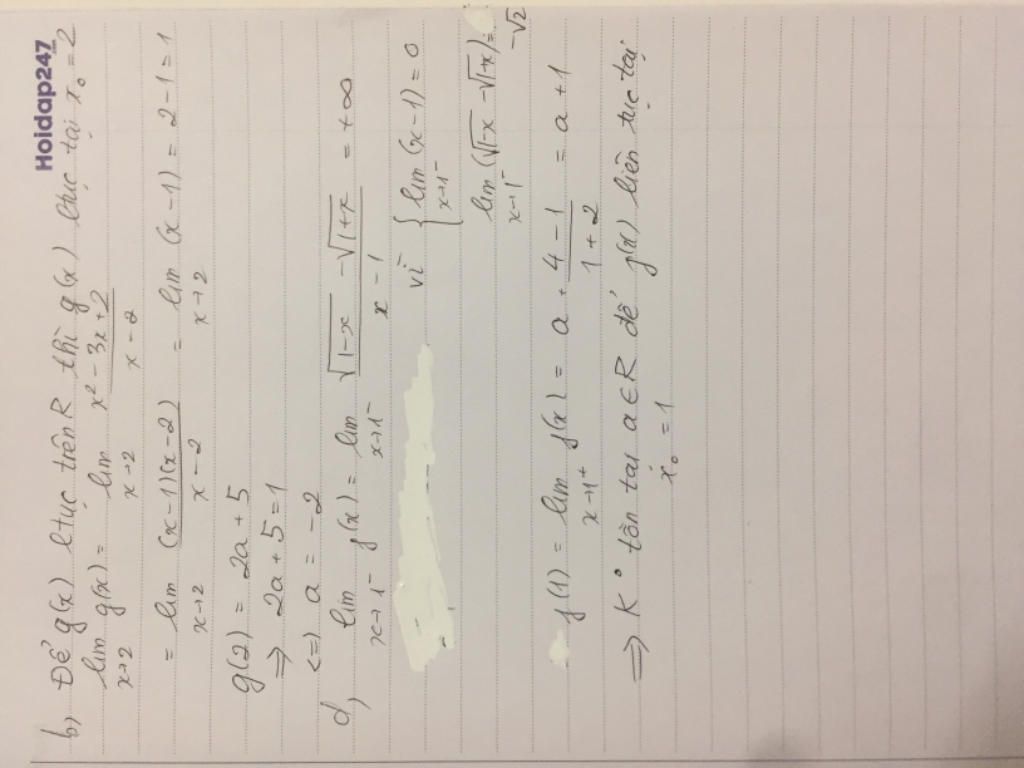 Hoidap247
b) Để g(x) ltục trên R thì g(x) ltục tại x₀ = 2
lim x→2 g(x) = lim x→2 (x² - 3x + 2)/(x - 2)
= lim x→2 (x-1)(x-2)/(x-2) = lim x→2 (x-1) = 2 - 1 = 1
g(2) = 2a + 5
⇒ 2a + 5 = 1
<=> a = -2
d) lim x→1⁻ f(x) = lim x→1⁻ (√(1-x) - √(1+x))/(x - 1) = +∞
vì { lim x→1⁻ (x-1) = 0
lim x→1⁻ (√(1-x) - √(1+x)) = -√2
f(1) = lim x→1⁺ f(x) = a + (4-1)/(1+2) = a + 1
⇒ K° tồn tại a∈R để f(x) liên tục tại
x₀ = 1